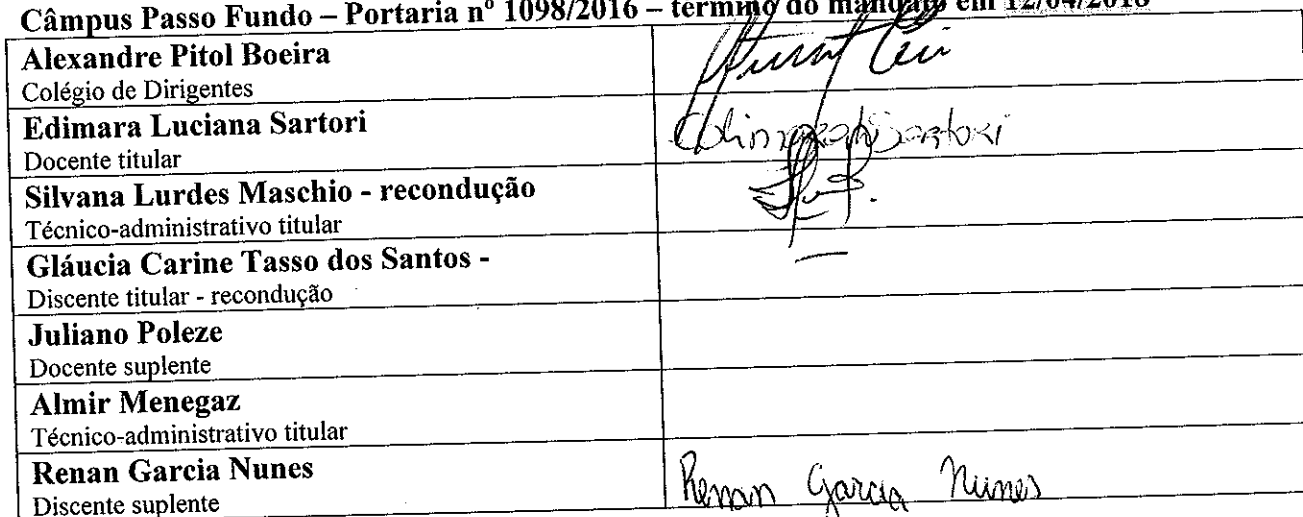 Câmpus Passo Fundo – Portaria nº 1098/2016 – término do mandato em 12/04/2018
Alexandre Pitol Boeira
Colégio de Dirigentes
Edimara Luciana Sartori
Sartori
Docente titular
Silvana Lurdes Maschio - recondução
Técnico-administrativo titular
Gláucia Carine Tasso dos Santos -
Discente titular - recondução
Juliano Poleze
Docente suplente
Almir Menegaz
Técnico-administrativo titular
Renan Garcia Nunes
Renan Garcia Nunes
Discente suplente